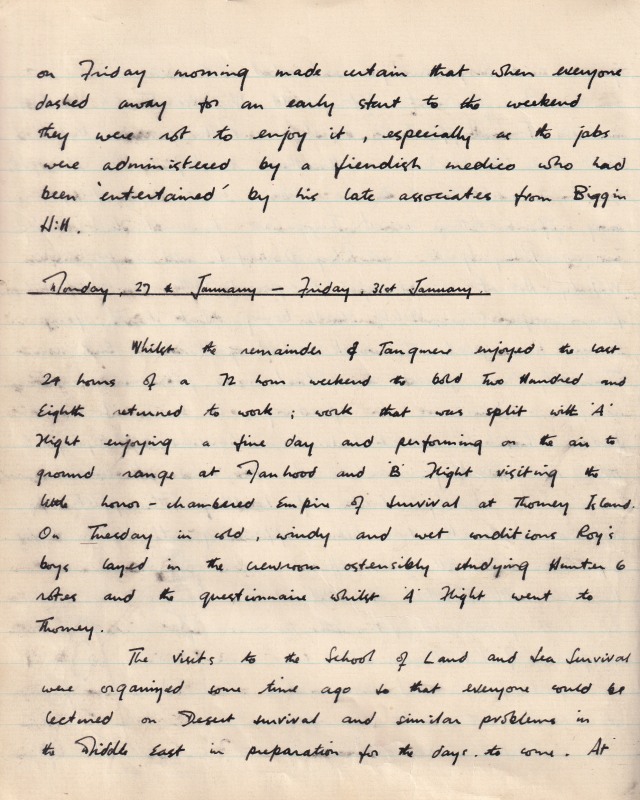 on Friday morning made certain that when everyone
dashed away for an early start to the weekend
they were not to enjoy it, especially as the jabs
were administered by a fiendish medico who had
been 'entertained' by his late associates from Biggin
Hill.
Monday, 27th January - Friday, 31st January.
Whilst the remainder of Tangmere enjoyed the last
24 hours of a 72 hour weekend the bold Two Hundred and
Eighth returned to work; work that was split with 'A'
Flight enjoying a fine day and performing on the air to
ground range at Manhood and 'B' Flight visiting the
little horror-chambered Empire of Survival at Thorney Island.
On Tuesday in cold, windy and wet conditions Roy's
boys layed in the crewroom ostensibly studying Hunter 6
notes and the questionnaire whilst 'A' Flight went to
Thorney.
The visits to the School of Land and Sea Survival
were organized some time ago so that everyone could be
lectured on Desert survival and similar problems in
the Middle East in preparation for the days to come. At